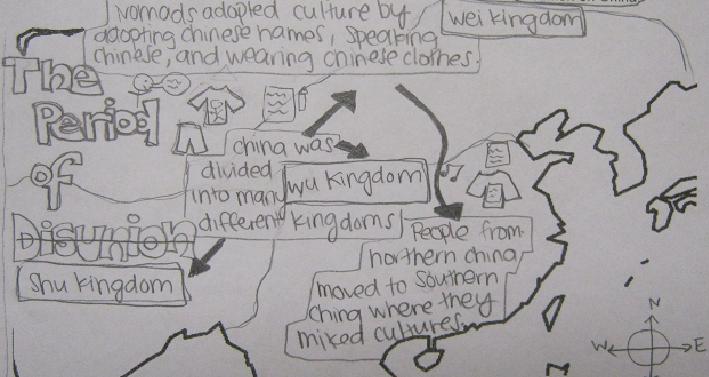 nomads adopted culture by
adopting chinese names, speaking
chinese, and wearing chinese clothes.
wei kingdom
The
Period
of
Disunion
china was
divided
into many
different kingdoms
wu kingdom
shu kingdom
People from
northern china
moved to Southern
china where they
mixed cultures.
N
W
E